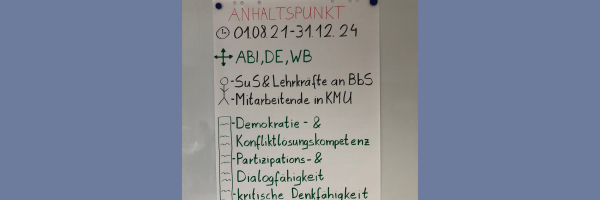 ANHALTSPUNKT
01.08.21-31.12.24
ABI,DE,WB
-SuS & Lehrkräfte an BbS
-Mitarbeitende in KMU
-Demokratie- &
Konfliktlösungskompetenz
-Partizipations- &
Dialogfähigkeit
-kritische Denkfähigkeit